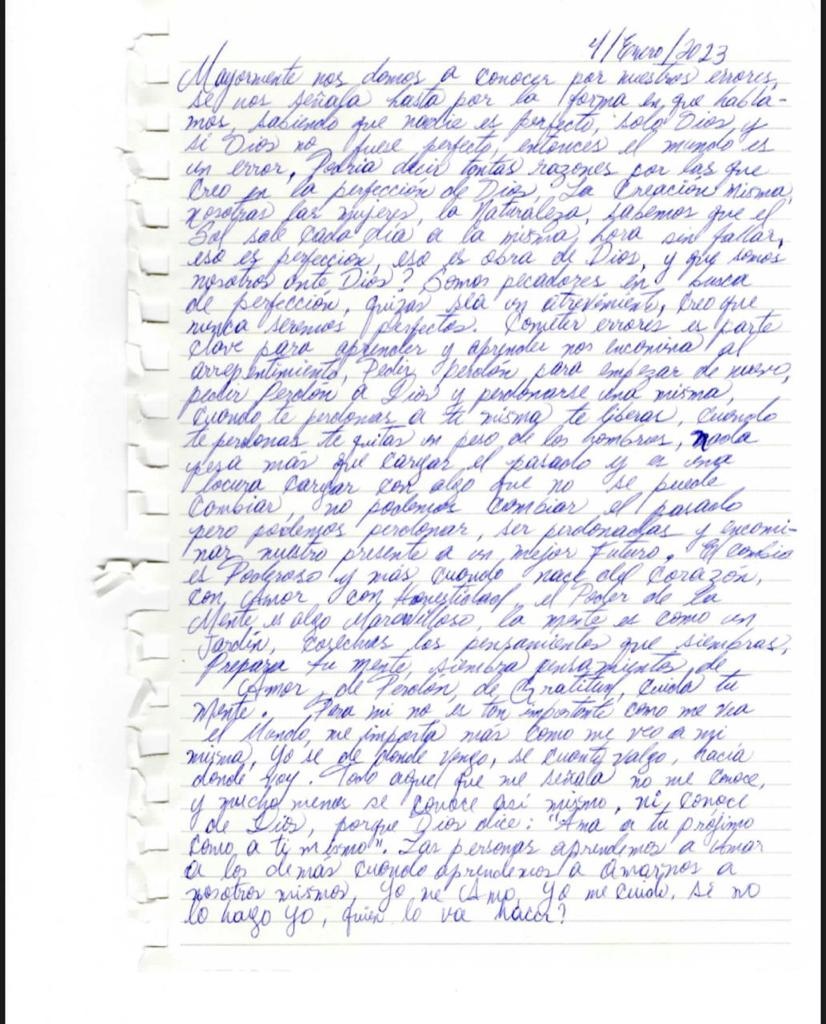 4/Enero/2023
Mayormente nos damos a conocer por nuestros errores,
se nos señala hasta por la forma en que habla-
mos, sabiendo que nadie es perfecto, solo Dios y
si Dios no fuese perfecto, entonces el mundo es
un error. Podria decir tantas razones por las que
Creo en la perfección de Dios, La Creación misma,
nosotras las mujeres, la Naturaleza, sabemos que el
Sol sale cada día a la misma hora sin fallar,
eso es perfección, eso es obra de Dios, y que somos
nosotros ante Dios? Somos pecadores en busca
de perfección, quizas sea un atrevimiento, Creo que
nunca seremos perfectos. Cometer errores es parte
clave para aprender y aprender nos encamina al
arrepentimiento, Pedir perdón para empezar de nuevo,
pedir Perdón a Dios y perdonarse una misma,
cuando te perdonas a ti misma te liberas, cuando
te perdonas te quitas un peso de los hombros, nada
pesa más que cargar el pasado y es una
locura cargar con algo que no se puede
Cambiar, no podemos cambiar el pasado
pero podemos perdonar, ser perdonadas y encami-
nar nuestro presente a un mejor Futuro. El cambio
es Poderoso y más cuando nace del Corazón,
con Amor con Honestidad, el Poder de la
Mente es algo Maravilloso, la mente es como un
Jardín, Cosechas los pensamientos que siembras,
Prepara tu mente, siembra pensamientos de
Amor, de Perdón, de Gratitud, cuida tu
Mente. Para mi no es tan importante como me vea
el Mundo, me importa más como me veo a mi
misma, Yo se de donde vengo, se cuanto valgo, hacia
donde voy. Todo aquel que me señala no me conoce,
y mucho menos se conoce asi mismo, ni conoce
de Dios, porque Dios dice: "Ama a tu prójimo
como a ti mismo". Las personas aprendemos a Amar
a los demás cuando aprendemos a Amarnos a
nosotros mismos, Yo me Amo, Yo me Cuido, si no
lo hago yo, quien lo va hacer?